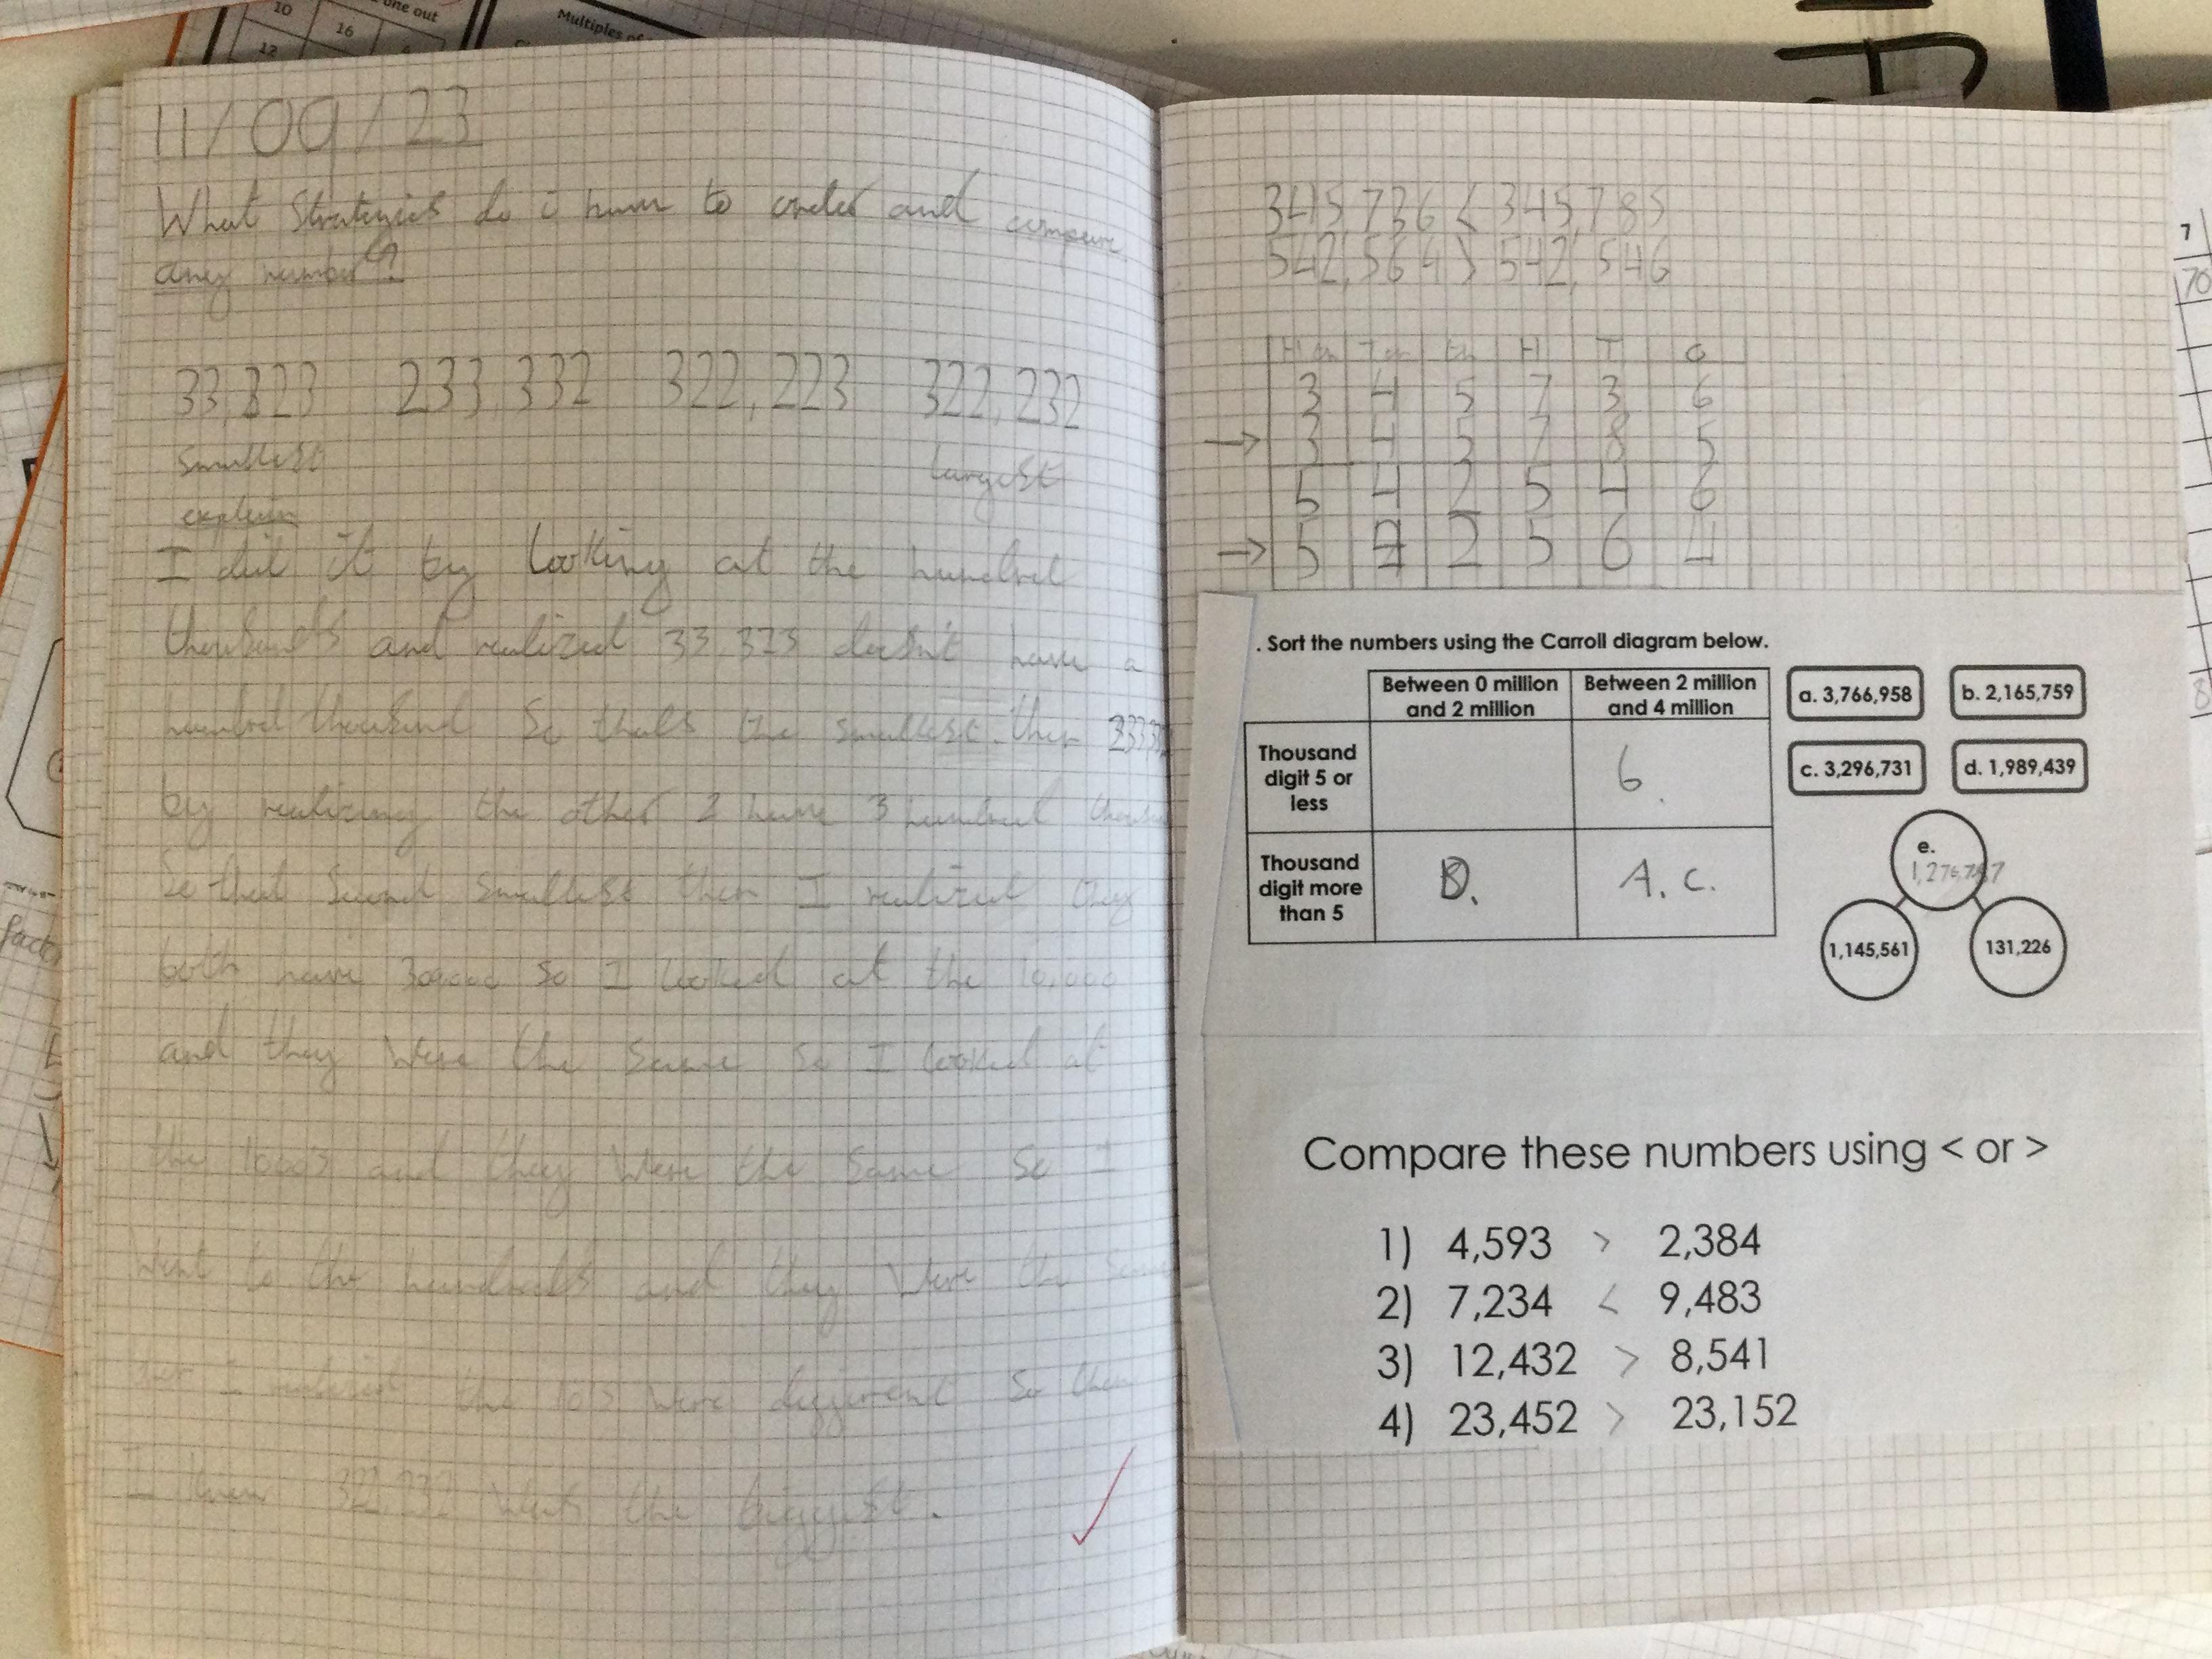 one out
10
16
12
Multiples of
11/09/23
What Strategies do i have to order and compare
any number?
33,323 233,332 322,223 322,232
smallest largest
explain
I did it by looking at the hundred
thousands and realized 33,323 doesn't have a
hundred thousand so thats the smallest. then
by realizing the other 2 have 3 hundred
So that second smallest then I realized they
both have so I looked at the 10,000
and they were the same so I looked at
the 1000s and they were the same so I
went to the hundreds and they were the same
I realized the 10s were different so then
I knew 322,232 was the biggest.
345,736 < 345,785
542,564 > 542,546
H T O
3 4 5 7 3 6
→ 3 4 5 7 8 5
5 4 2 5 4 6
→ 5 4 2 5 6 4
. Sort the numbers using the Carroll diagram below.
Between 0 million and 2 million
Between 2 million and 4 million
Thousand digit 5 or less
6.
Thousand digit more than 5
D.
A. C.
a. 3,766,958
b. 2,165,759
c. 3,296,731
d. 1,989,439
e.
1,145,561
131,226
Compare these numbers using < or >
1) 4,593 > 2,384
2) 7,234 < 9,483
3) 12,432 > 8,541
4) 23,452 > 23,152
7
70
8